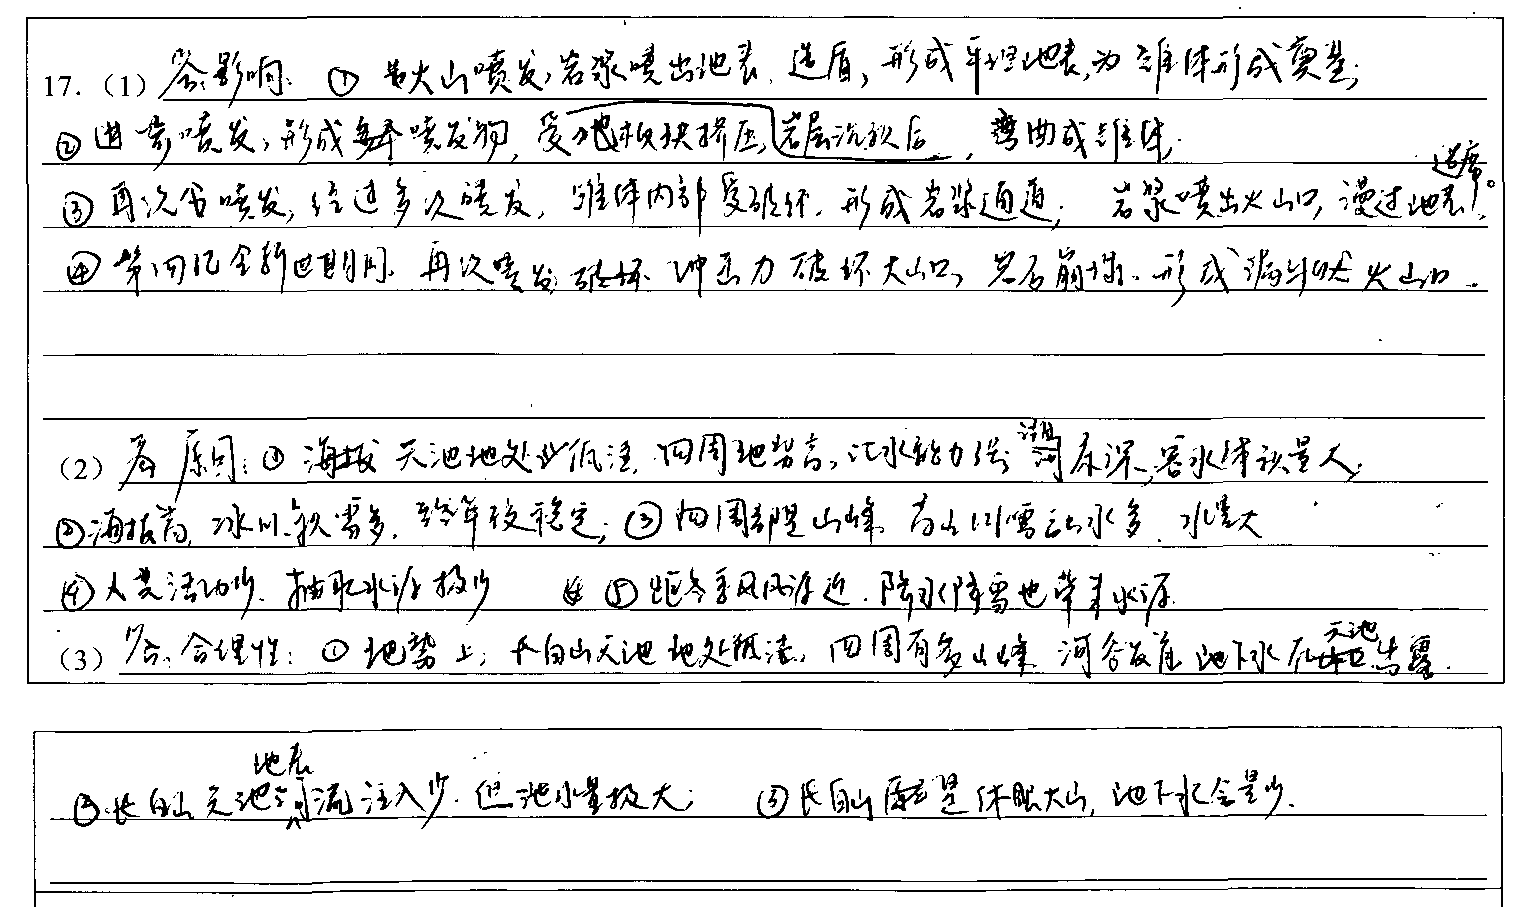 17.（1）答：影响：① 火山喷发，岩浆喷出地表，造盾，形成平坦地表，为锥体形成奠基；
② 进而喷发，形成喷发物，受地板块挤压，岩层沉积后，弯曲成锥体，
③ 再次喷发，经过多次喷发，锥体内部受破坏，形成岩浆通道；岩浆喷出火山口，漫过地表，造席。
④ 第四纪全新世期间，再次喷发 冲击力破坏火山口，岩石崩塌，形成漏斗状火山口．
（2）答 原因：① 海拔 天池地处低洼，四周地势高，汇水能力强 湖床深，容水体积量大；
② 海拔高，冰川、积雪多，较稳定；③ 四周都是山峰 高山冰雪融水多，水量大
④ 人类活动少，抽取水源极少 ⑤ 距冬季风风源近，降水降雪也带来水源
（3）答：合理性：① 地势上，长白山天池地处低洼，四周有多山峰 河谷发育 地下水在天池
② 长白山天池地表河流注入少，但池水量极大； ③ 长白山是休眠火山，地下水含量少．